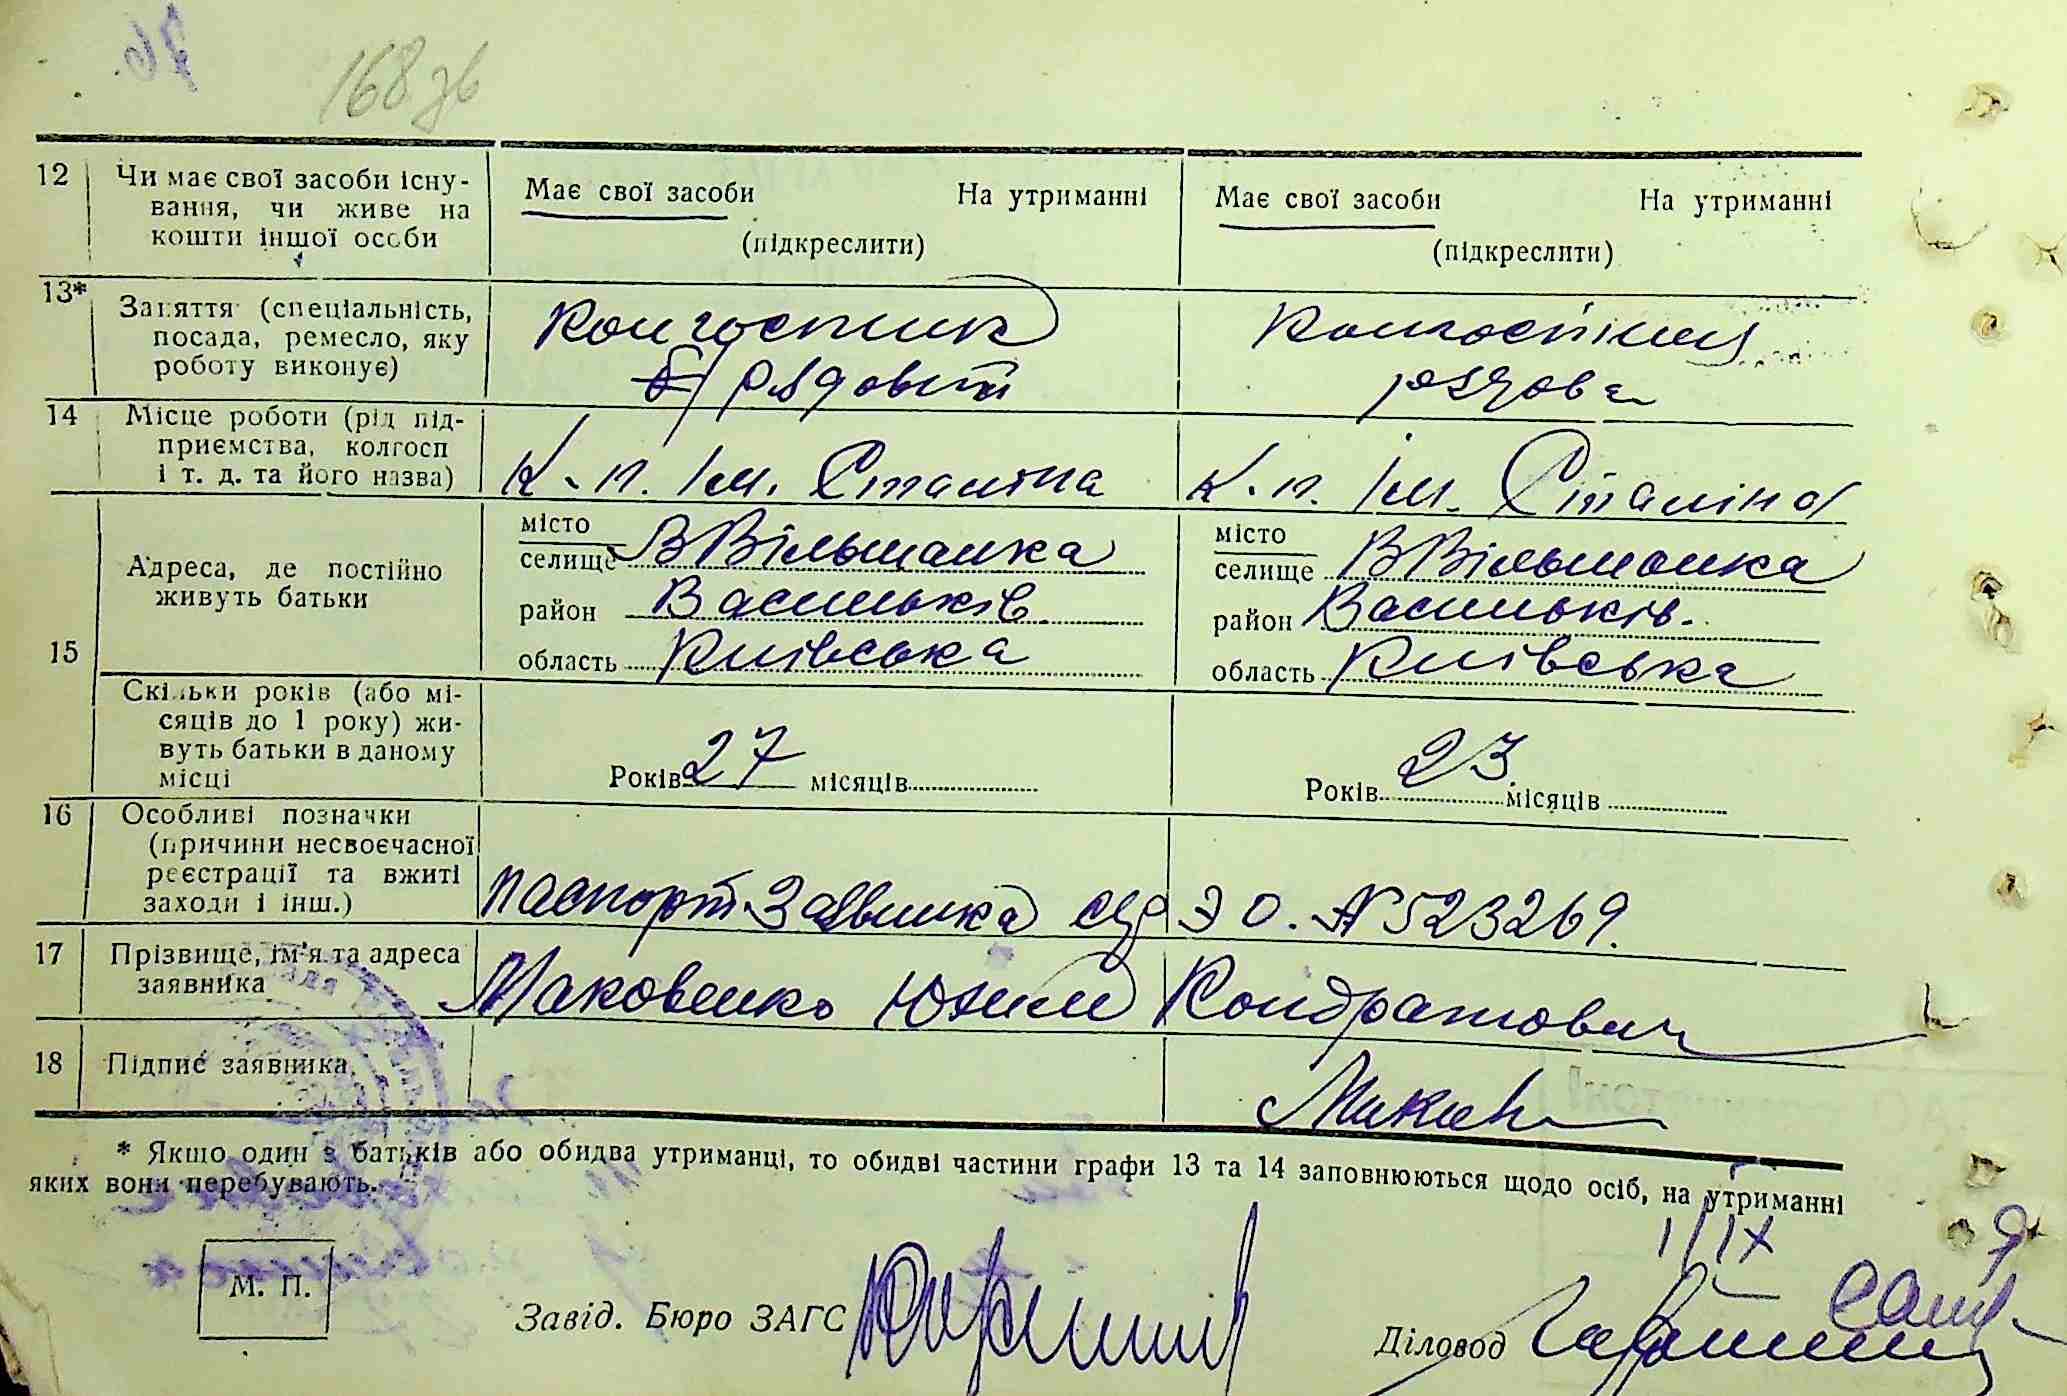 168 зв
12 Чи має свої засоби існу-
вання, чи живе на
кошти іншої особи
Має свої засоби На утриманні
(підкреслити)
Має свої засоби На утриманні
(підкреслити)
13* Заняття (спеціальність,
посада, ремесло, яку
роботу виконує)
Колгоспник
рядовий
Колгоспниця
рядова
14 Місце роботи (рід під-
приємства, колгосп
і т. д. та його назва)
К-п. Ім. Сталіна
К-п. Ім. Сталіна
15 Адреса, де постійно
живуть батьки
місто
селище В Вільшанка
район Васильків.
область Київська
місто
селище В Вільшанка
район Васильків.
область Київська
Скільки років (або мі-
сяців до 1 року) жи-
вуть батьки в даному
місці
Років 27 місяців
Років 23 місяців
16 Особливі позначки
(причини несвоєчасної
реєстрації та вжиті
заходи і інш.)
паспорт Заявника ЭО. № 523269.
17 Прізвище, ім'я та адреса
заявника
Маковенко Юхим Кондратович
18 Підпис заявника
* Якщо один з батьків або обидва утриманці, то обидві частини графи 13 та 14 заповнюються щодо осіб, на утриманні
яких вони перебувають.
М. П.
Завід. Бюро ЗАГС
Діловод
1/IX